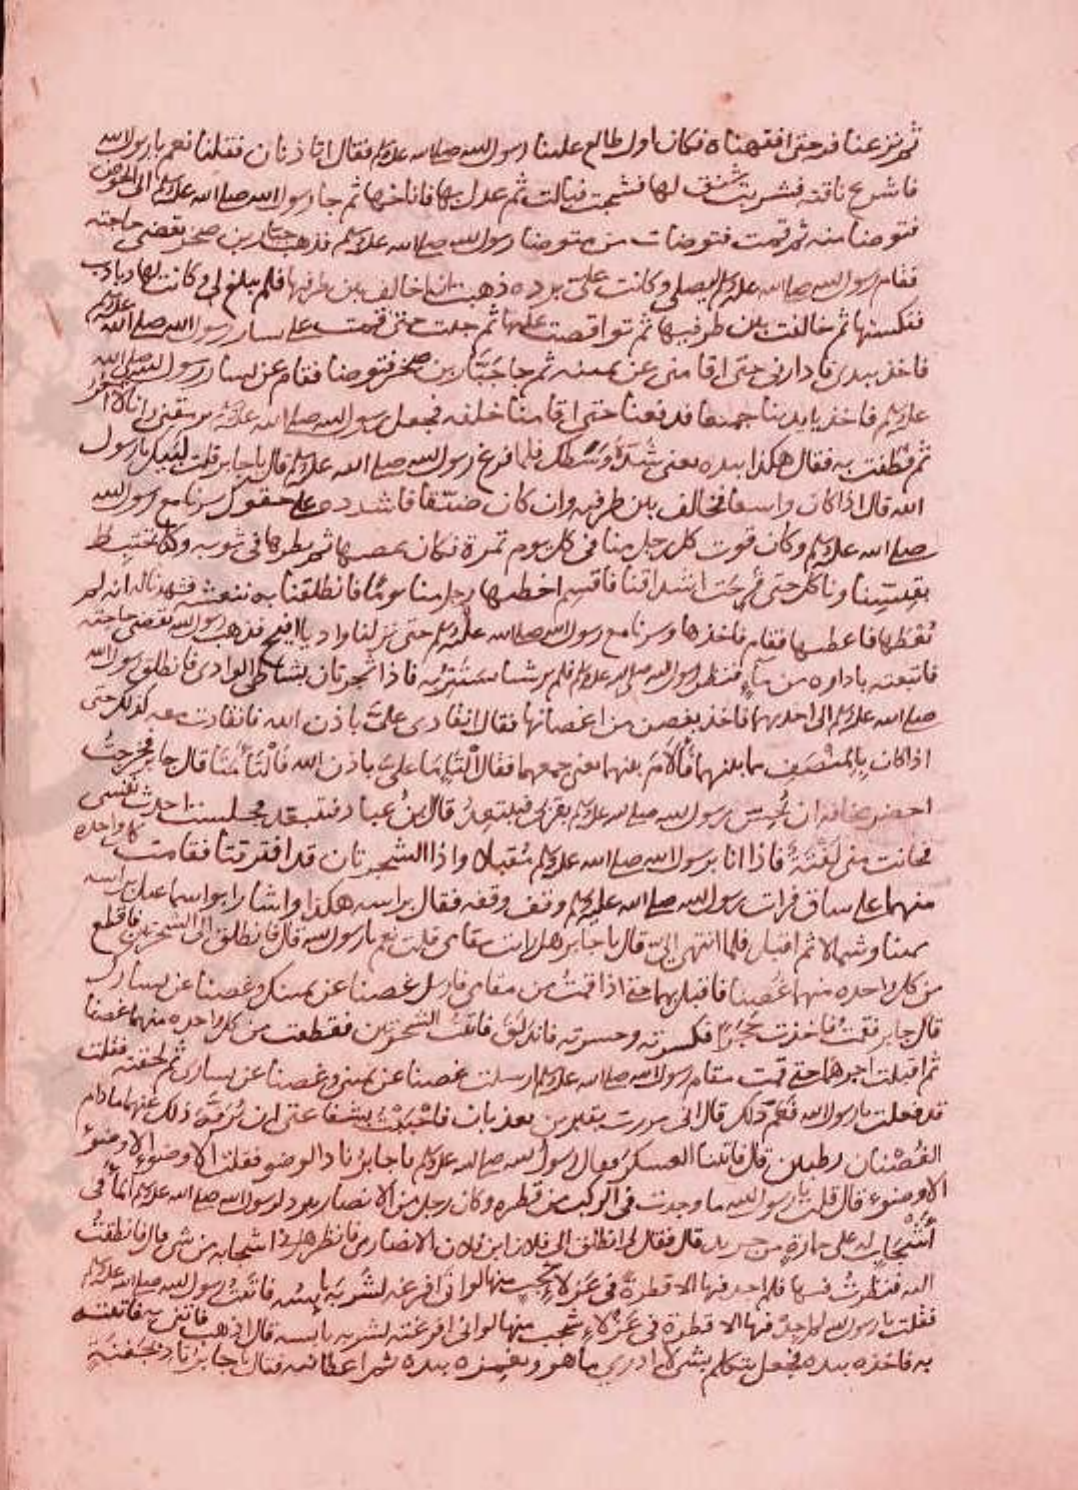 ثم نزعنا فيه حتى افقهناه فكان اول طالع علينا رسول الله صلى الله عليه وسلم فقال اتاذنان فقلنا نعم يا رسول الله
فاشرع ناقته فشربت شنق لها فشجت فبالت ثم عدل بها فاناخها ثم جا رسول الله صلى الله عليه وسلم الى الحوض
فتوضا منه ثم قمت فتوضات من متوضا رسول الله صلى الله عليه وسلم فذهب جبار بن صخر يقضي حاجته
فقام رسول الله صلى الله عليه وسلم ليصلي وكانت علي برده ذهبت ان اخالف بين طرفيها فلم يبلغ لي وكانت لها ذباذب
فنكستها ثم خالفت بين طرفيها ثم تواقصت عليها ثم جئت حتى قمت على يسار رسول الله صلى الله عليه وسلم
فاخذ بيدي فادارني حتى اقامني عن يمينه ثم جا جبار بن صخر فتوضا فقام عن يسار رسول الله صلى الله
عليه وسلم فاخذ بايدينا جميعا فدفعنا حتى اقامنا خلفه فجعل رسول الله صلى الله عليه وسلم يرمقني وانا لا اشعر
ثم فطنت به فقال هكذا بيده يعني شد وسطك فلما فرغ رسول الله صلى الله عليه وسلم قال يا جابر قلت لبيك يا رسول
الله قال اذا كان واسعا فخالف بين طرفيه وان كان ضيقا فاشدده على حقوك سرنا مع رسول الله
صلى الله عليه وسلم وكان قوت كل رجل منا في كل يوم تمرة فكان يمصها ثم يصرها في ثوبه وكنا نختبط
بقسينا وناكل حتى قرحت اشداقنا فاقسم اخطئها رجل منا يوما فانطلقنا به ننعشه فشهدنا له انه لم
يعطها فاعطيها فقام فاخذها وسرنا مع رسول الله صلى الله عليه وسلم حتى نزلنا واديا افيح فذهب رسول الله يقضي حاجته
فاتبعته باداوه من ماء فنظر رسول الله صلى الله عليه وسلم فلم ير شيئا يستتر به فاذا شجرتان بشاطئ الوادي فانطلق رسول الله
صلى الله عليه وسلم الى احديهما فاخذ بغصن من اغصانها فقال انقادي علي باذن الله فانقادت معه كذلك حتى
اذا كان بالمنصف مما بينهما لام بينهما يعني جمعهما فقال التئما علي باذن الله فالتامتا قال جابر فخرجت
احضر مخافة ان يحس رسول الله صلى الله عليه وسلم بقربي فيبتعد قال بن عباد فيتبعد فجلست احدث نفسي
فحانت مني لفتة فاذا انا برسول الله صلى الله عليه وسلم مقبلا واذا الشجرتان قد افترقتا فقامت كل واحده
منهما على ساق فرايت رسول الله صلى الله عليه وسلم وقف وقفه فقال براسه هكذا واشار ابو اسماعيل براسه
يمينا وشمالا ثم اقبل فلما انتهى الي قال يا جابر هل رايت مقامي قلت نعم يا رسول الله قال فانطلق الى الشجرتين فاقطع
من كل واحده منهما غصنا فاقبل بهما حتى اذا قمت من مقامي فارسل غصنا عن يمينك وغصنا عن يسارك
قال جابر فقمت فاخذت حجرا فكسرته وحسرته فاندلق فاتيت الشجرتين فقطعت من كل واحده منهما غصنا
ثم اقبلت اجرهما حتى قمت مقام رسول الله صلى الله عليه وسلم ارسلت غصنا عن يميني وغصنا عن يساري ثم لحقته فقلت
قد فعلت يا رسول الله فعم ذلك قال اني مررت بقبرين يعذبان فاحببت بشفاعتي ان يرفه ذلك عنهما مادام
الغصنان رطبين قال فاتينا العسكر فقال رسول الله صلى الله عليه وسلم يا جابر ناد الوضو فقلت الا وضوء الا وضوء
الا وضوء قال قلت يا رسول الله ما وجدت في الركب من قطره وكان رجل من الانصار يبرد لرسول الله صلى الله عليه وسلم الماء في
اشجاب له على حمارة من جريد قال فقال لي انطلق الى فلان ابن فلان الانصاري فانظر هل في اشجابه من شي قال فانطلقت
اليه فنظرت فيها فلم اجد فيها الا قطرة في عزلاء شجب منها لو اني افرغه لشربه يابسه فاتيت رسول الله صلى الله عليه وسلم
فقلت يا رسول الله لم اجد فيها الا قطرة في عزلاء شجب منها لو اني افرغته لشربه يابسه قال اذهب فاتني به فاتيته
به فاخذه بيده فجعل يتكلم بشي لا ادري ما هو ويغمزه بيده ثم اعطانيه فقال يا جابر ناد بجفنة